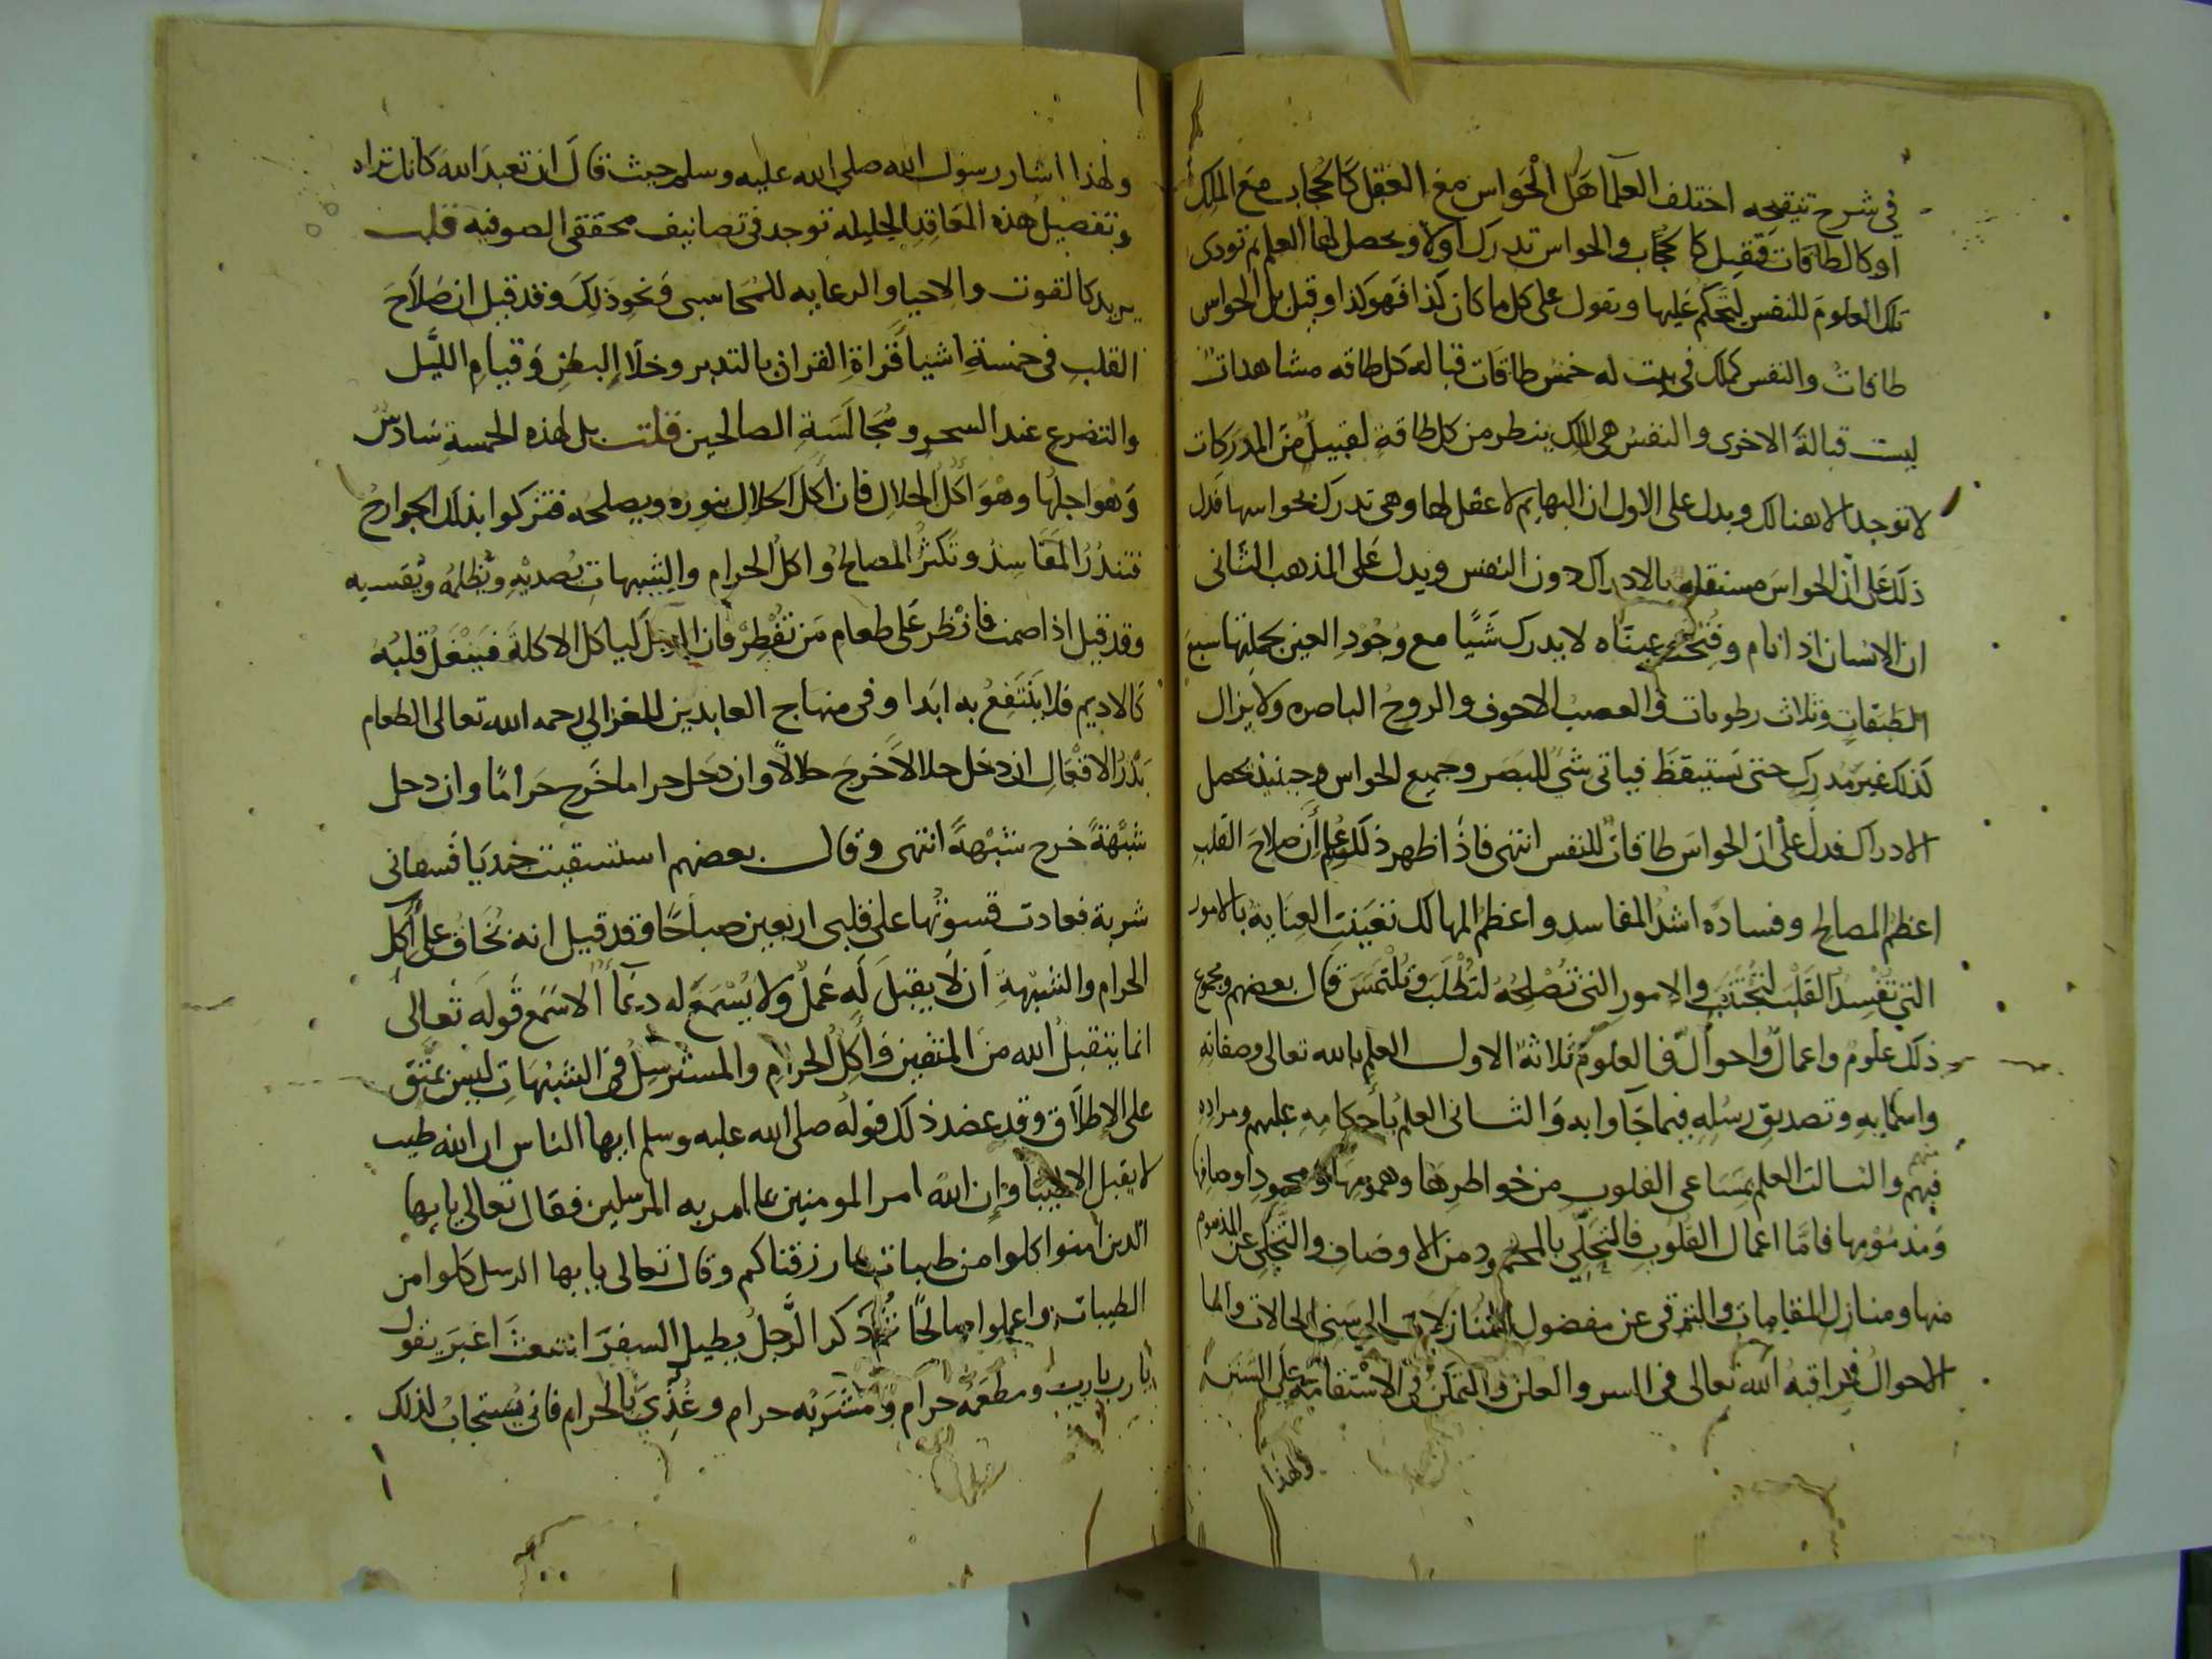 في شرح تنقيحه اختلف العلما هل الحواس مع العقل كالحجاب مع الملك
او كالطاقات فقيل كالحجاب والحواس تدرك اولا ويحصل لها العلم ثم تودى
تلك العلوم للنفس لتحكم عليها وتقول على كل ما كان كذا فهو كذا وقيل بل الحواس
طاقات والنفس كملك في بيت له خمس طاقات قبالة كل طاقه مشاهدات
ليست قبالة الاخرى والنفس هي الملك ينظر من كل طاقة لقبيل من المدركات
لا توجد الا هنالك ويدل على الاول ان البهايم لا عقل لها وهي تدرك بحواسها فدل
ذلك على ان الحواس مستقلة بالادراك دون النفس ويدل على المذهب الثاني
ان الانسان اذا نام وفتحت عيناه لا يدرك شيا مع وجود العين بجملتها سبع
الطبقات وثلاث رطوبات والعصب الاجوف والروح الباصره ولا يزال
كذلك غير مدرك حتى يستيقظ فياتي شي للبصر وجميع الحواس وحينيذ يحصل
الادراك فدل على ان الحواس طاقات للنفس انتهى فاذا ظهر ذلك وعلم ان صلاح القلب
اعظم المصالح وفساده اشد المفاسد واعظم المهالك تعينت العناية بالامور
التي تفسد القلب لتجتنب والامور التي تصلحه لتطلب وتلتمس قال بعضهم ومجموع
ذلك علوم واعمال واحوال فالعلوم ثلاثة الاول العلم بالله تعالى وصفاته
واسمايه وتصديق رسله فيما جآوا به والثاني العلم باحكامه عليهم ومراده
منهم
فيهم والثالث العلم بمساعي القلوب من خواطرها وهمومها ومحمود اوصافها
ومذمومها فاما اعمال القلوب فالتحلي بالمحمود من الاوصاف والتخلي عن المذموم
منها ومنازل المقامات والترقي عن مفضول المنازلات الى سني الحالات واما
الاحوال فمراقبة الله تعالى في السر والعلن والتمكن في الاستقامة على السنن
ولهذا
ولهذا اشار رسول الله صلى الله عليه وسلم حيث قال ان تعبد الله كانك تراه
وتفصيل هذه المعاقد الجليله توجد في تصانيف محققي الصوفيه قلت
يريد كالقوت والاحيا والرعايه للمحاسبي ونحو ذلك وقد قيل ان صلاح
القلب في خمسة اشيا قراة القران بالتدبر وخلا البطن وقيام الليل
والتضرع عند السحر ومجالسة الصالحين قلت بل لهذه الخمسة سادس
وهو اجلها وهو اكل الحلال فان اكل الحلال ينوره ويصلحه فتزكوا بذلك الجوارح
فتندر المفاسد وتكثر المصالح واكل الحرام والشبهات يصديه ويظلمه ويقسيه
وقد قيل اذا صمت فانظر على طعام من تفطر فان الرجل لياكل الاكلة فينغل قلبه
كالاديم فلا ينتفع به ابدا وفي منهاج العابدين للغزالي رحمه الله تعالى الطعام
بذر الافعال ان دخل حلالا خرج حلالا وان دخل حراما خرج حراما وان دخل
شبهة خرج شبهة انتهى وقال بعضهم استسقيت جنديا فسقاني
شربة فعادت قسوتها على قلبي اربعين صباحا وقد قيل انه يخاف على اكل
الحرام والشبهة ان لا يقبل له عمل ولا يسمع له دعآ الا سمع قوله تعالى
انما يتقبل الله من المتقين فاكل الحرام والمسترسل في الشبهات ليس بمتق
على الاطلاق وقد عضد ذلك قوله صلى الله عليه وسلم ايها الناس ان الله طيب
لا يقبل الا طيبا وان الله امر المومنين بما امر به المرسلين فقال تعالى يايها
الذين امنوا كلوا من طيبات ما رزقناكم وقال تعالى يايها الرسل كلوا من
الطيبات واعملوا صالحا ثم ذكر الرجل يطيل السفر اشعث اغبر يقول
يا رب يا رب ومطعمه حرام ومشربه حرام وغذي بالحرام فانى يستجاب لذلك